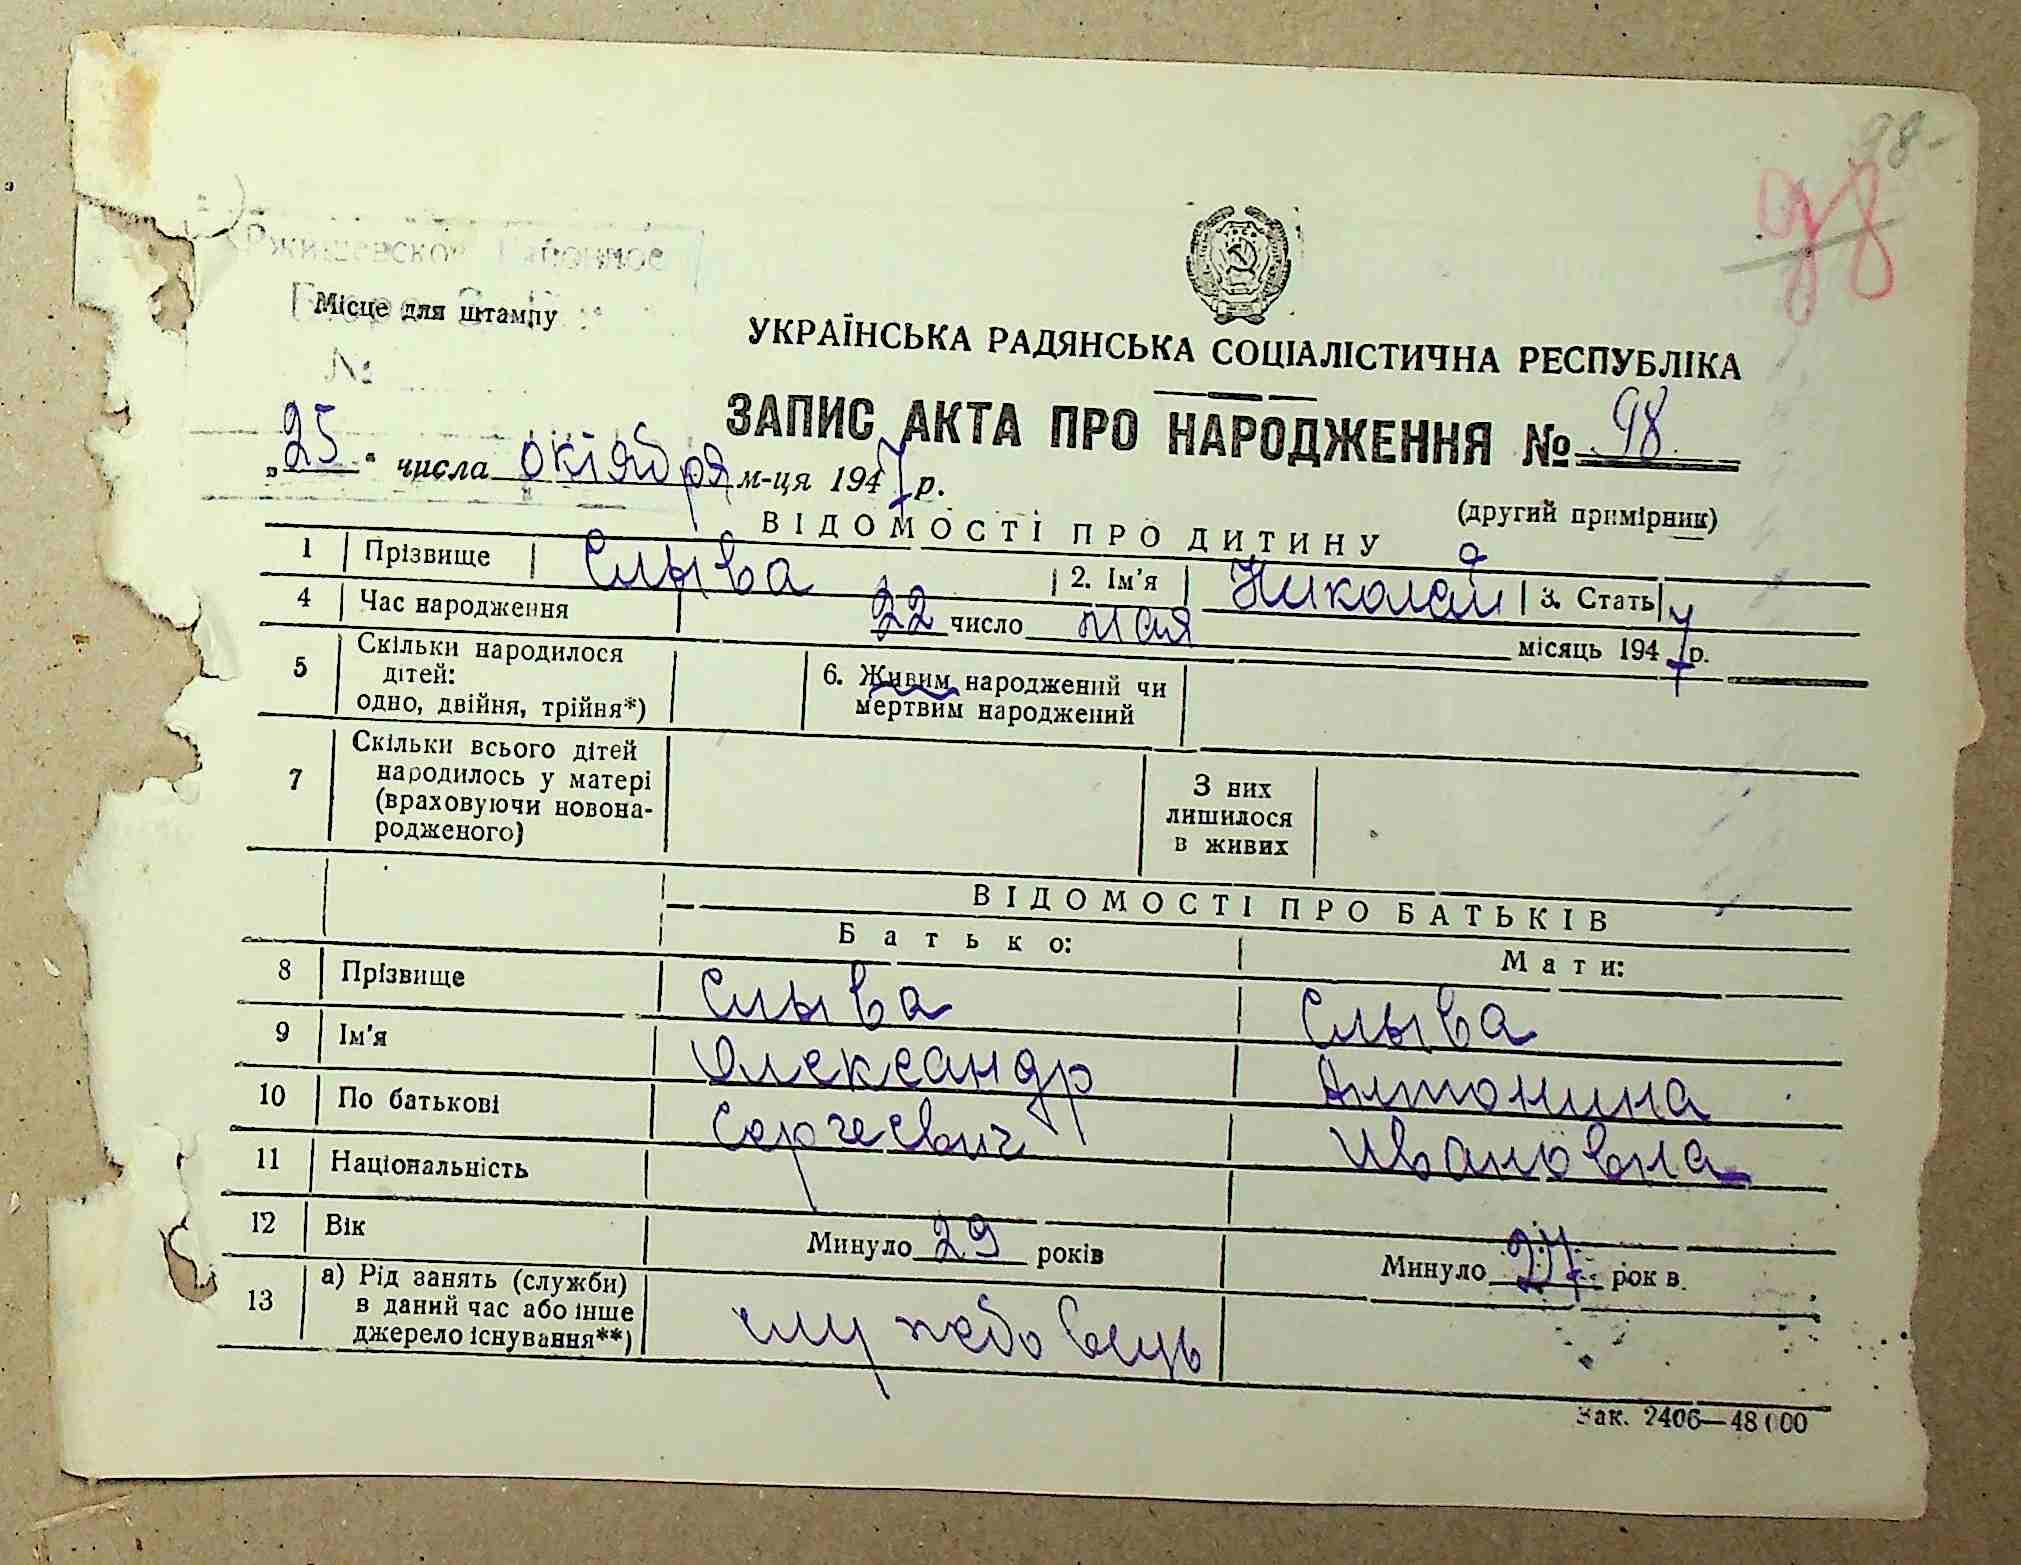 98-
98
Ржищевское Районное
Місце для штампу
№
УКРАЇНСЬКА РАДЯНСЬКА СОЦІАЛІСТИЧНА РЕСПУБЛІКА
ЗАПИС АКТА ПРО НАРОДЖЕННЯ № 98
„25" числа октября м-ця 1947 р.
(другий примірник)
ВІДОМОСТІ ПРО ДИТИНУ
1 Прізвище Слыва 2. Ім'я Николай 3. Стать ч
4 Час народження 22 число мая місяць 1947 р.
5 Скільки народилося дітей: одно, двійня, трійня*) 6. Живим народжений чи мертвим народжений
7 Скільки всього дітей народилось у матері (враховуючи новонародженого) З них лишилося в живих
ВІДОМОСТІ ПРО БАТЬКІВ
Батько: Мати:
8 Прізвище Слыва Слыва
9 Ім'я Олександр Антонина
10 По батькові Сергеевич Ивановна
11 Національність
12 Вік Минуло 29 років Минуло 27 рок в.
13 а) Рід занять (служби) в даний час або інше джерело існування**) службовець
Зак. 2406—48000